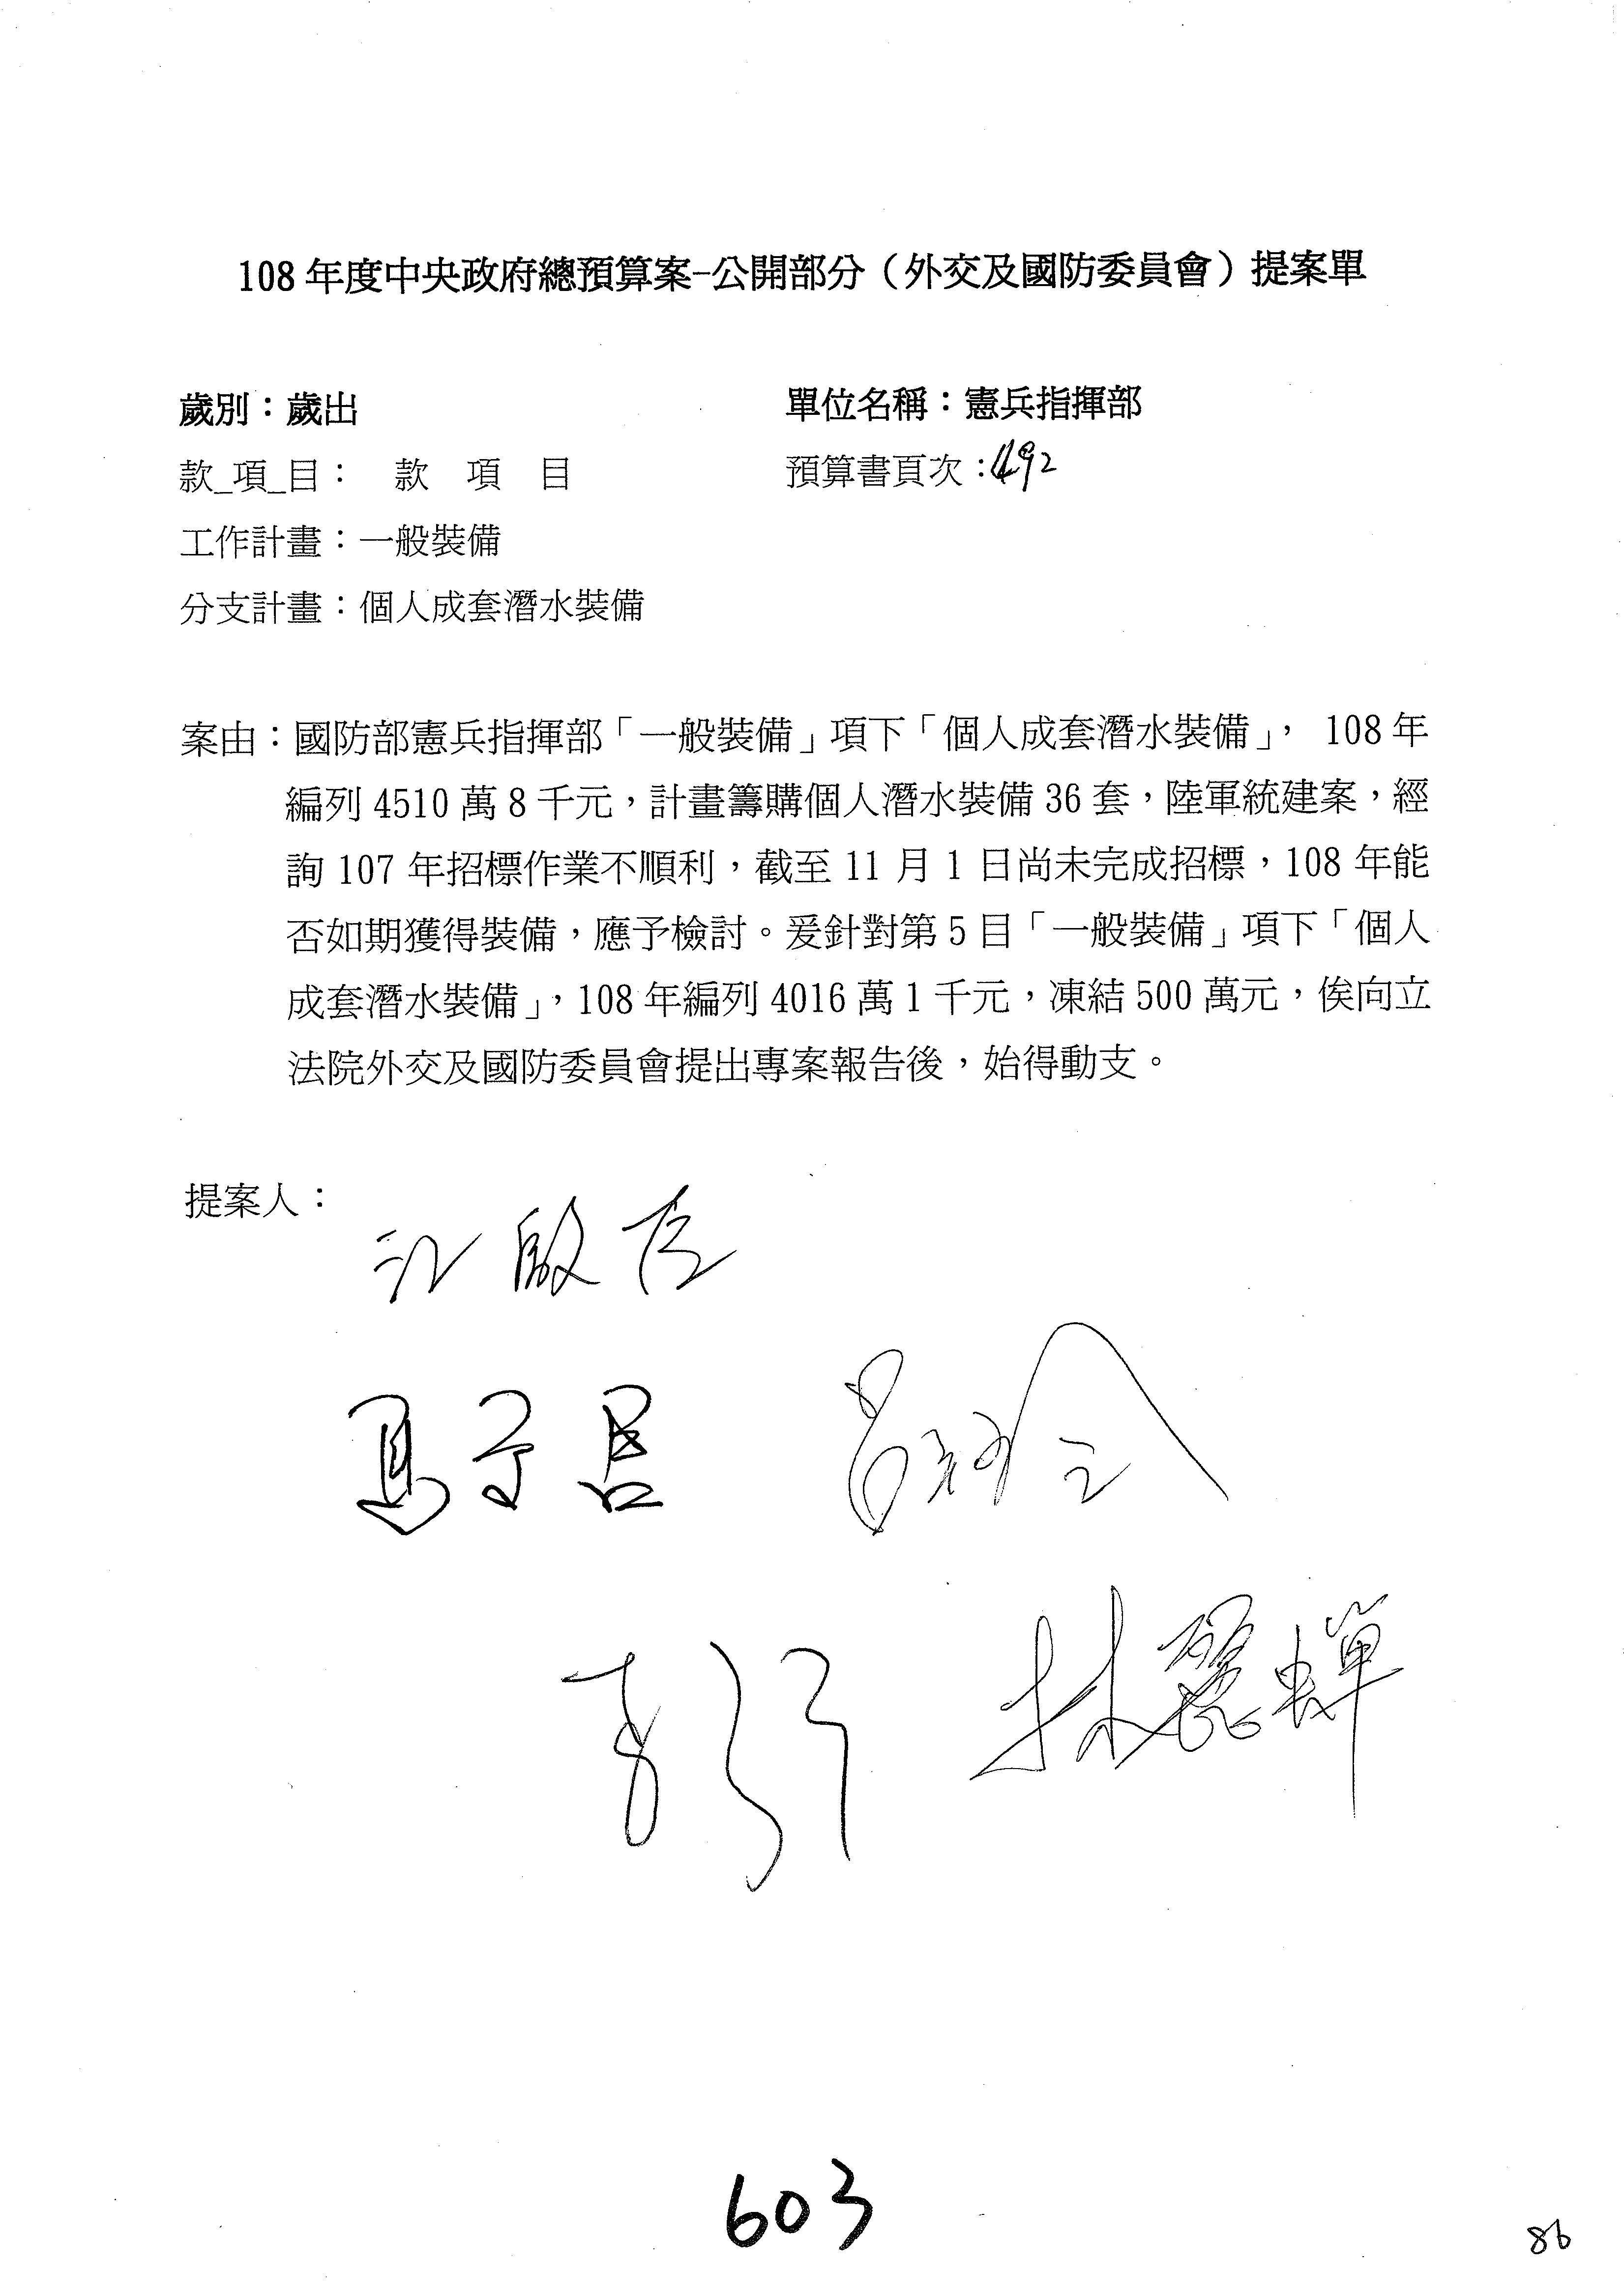 108年度中央政府總預算案-公開部分（外交及國防委員會）提案單
歲別：歲出
單位名稱：憲兵指揮部
款_項_目： 款 項 目
預算書頁次：492
工作計畫：一般裝備
分支計畫：個人成套潛水裝備
案由：國防部憲兵指揮部「一般裝備」項下「個人成套潛水裝備」， 108年
編列4510萬8千元，計畫籌購個人潛水裝備36套，陸軍統建案，經
詢107年招標作業不順利，截至11月1日尚未完成招標，108年能
否如期獲得裝備，應予檢討。爰針對第5目「一般裝備」項下「個人
成套潛水裝備」，108年編列4016萬1千元，凍結500萬元，俟向立
法院外交及國防委員會提出專案報告後，始得動支。
提案人：
江啟臣
馬文君 呂玉玲
林麗蟬
603
86